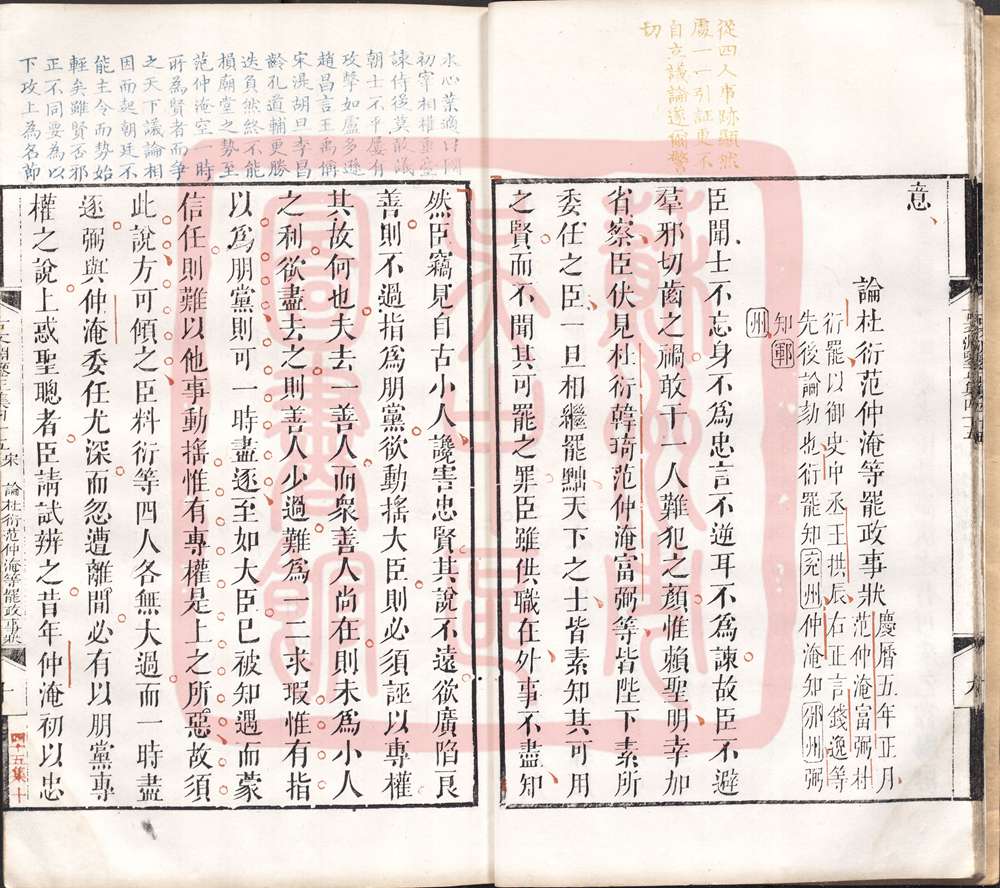 從四人事跡顯然
處一一引証更不
自立議論遂
切
意
論杜衍范仲淹等罷政事狀
慶曆五年正月
范仲淹富弼杜
衍罷以御史中丞王拱辰右正言錢逸等
先後論劾也衍罷知兖州仲淹知邠州弼
知鄆
州
臣聞士不忘身不爲忠言不逆耳不爲諫故臣不避
羣邪切齒之禍敢干一人難犯之顏惟賴聖明幸加
省察臣伏見杜衍韓琦范仲淹富弼等皆陛下素所
委任之臣一旦相繼罷黜天下之士皆素知其可用
之賢而不聞其可罷之罪臣雖供職在外事不盡知
水心葉適曰國
初宰相權重臺
諫侍從莫敢議
朝士不平屢有
攻擊如盧多遜
趙昌言王禹偁
宋湜胡旦李昌
齡孔道輔更勝
迭負然終不能
損廟堂之勢至
范仲淹空一時
所為賢者而爭
之天下議論相
因而起朝廷不
能主令而勢始
輕矣雖賢否邪
正不同要為以
下攻上為名節
然臣竊見自古小人讒害忠賢其說不遠欲廣陷良
善則不過指爲朋黨欲動搖大臣則必須誣以專權
其故何也夫去一善人而衆善人尚在則未爲小人
之利欲盡去之則善人少過難爲一二求瑕惟有指
以爲朋黨則可一時盡逐至如大臣已被知遇而蒙
信任則難以他事動搖惟有專權是上之所惡故須
此說方可傾之臣料衍等四人各無大過而一時盡
逐弼與仲淹委任尤深而忽遭離間必有以朋黨專
權之說上惑聖聰者臣請試辨之昔年仲淹初以忠
宋
論杜衍范仲淹等罷政事狀
四十五集十